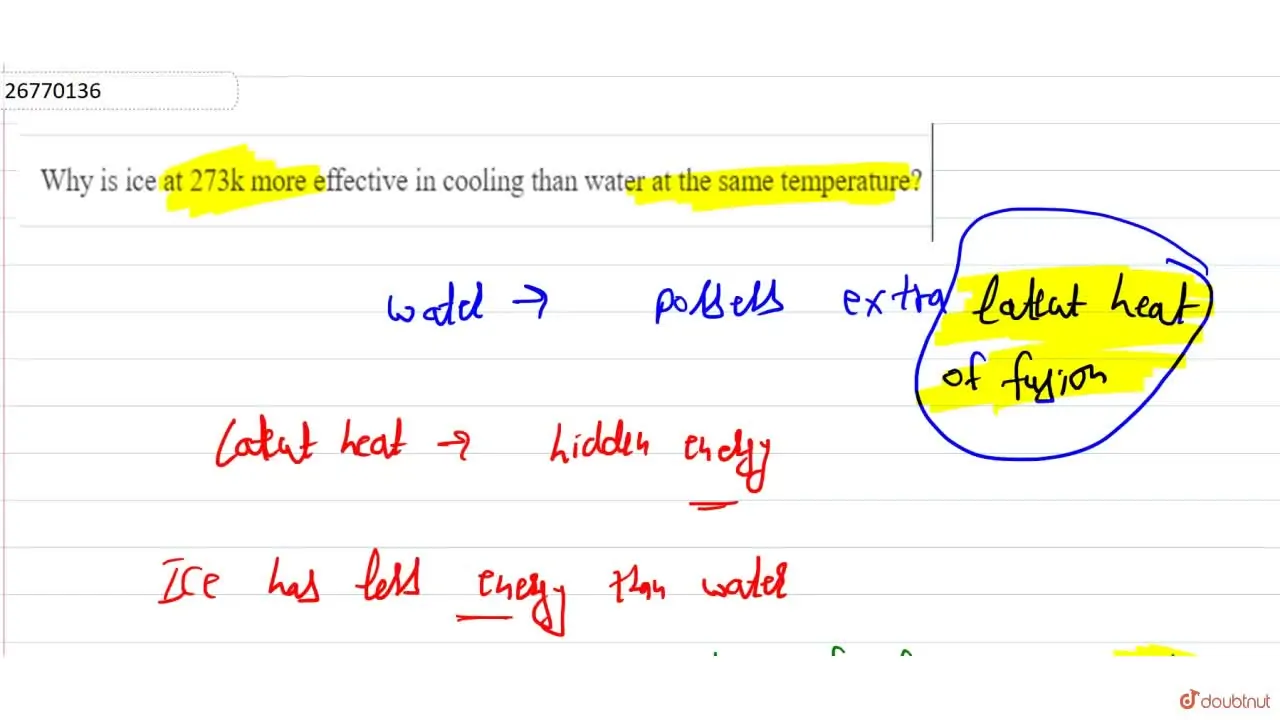 26770136
Why is ice at 273k more effective in cooling than water at the same temperature?
water → possess extra latent heat
of fusion
Latent heat → hidden energy
Ice has less energy than water
doubtnut